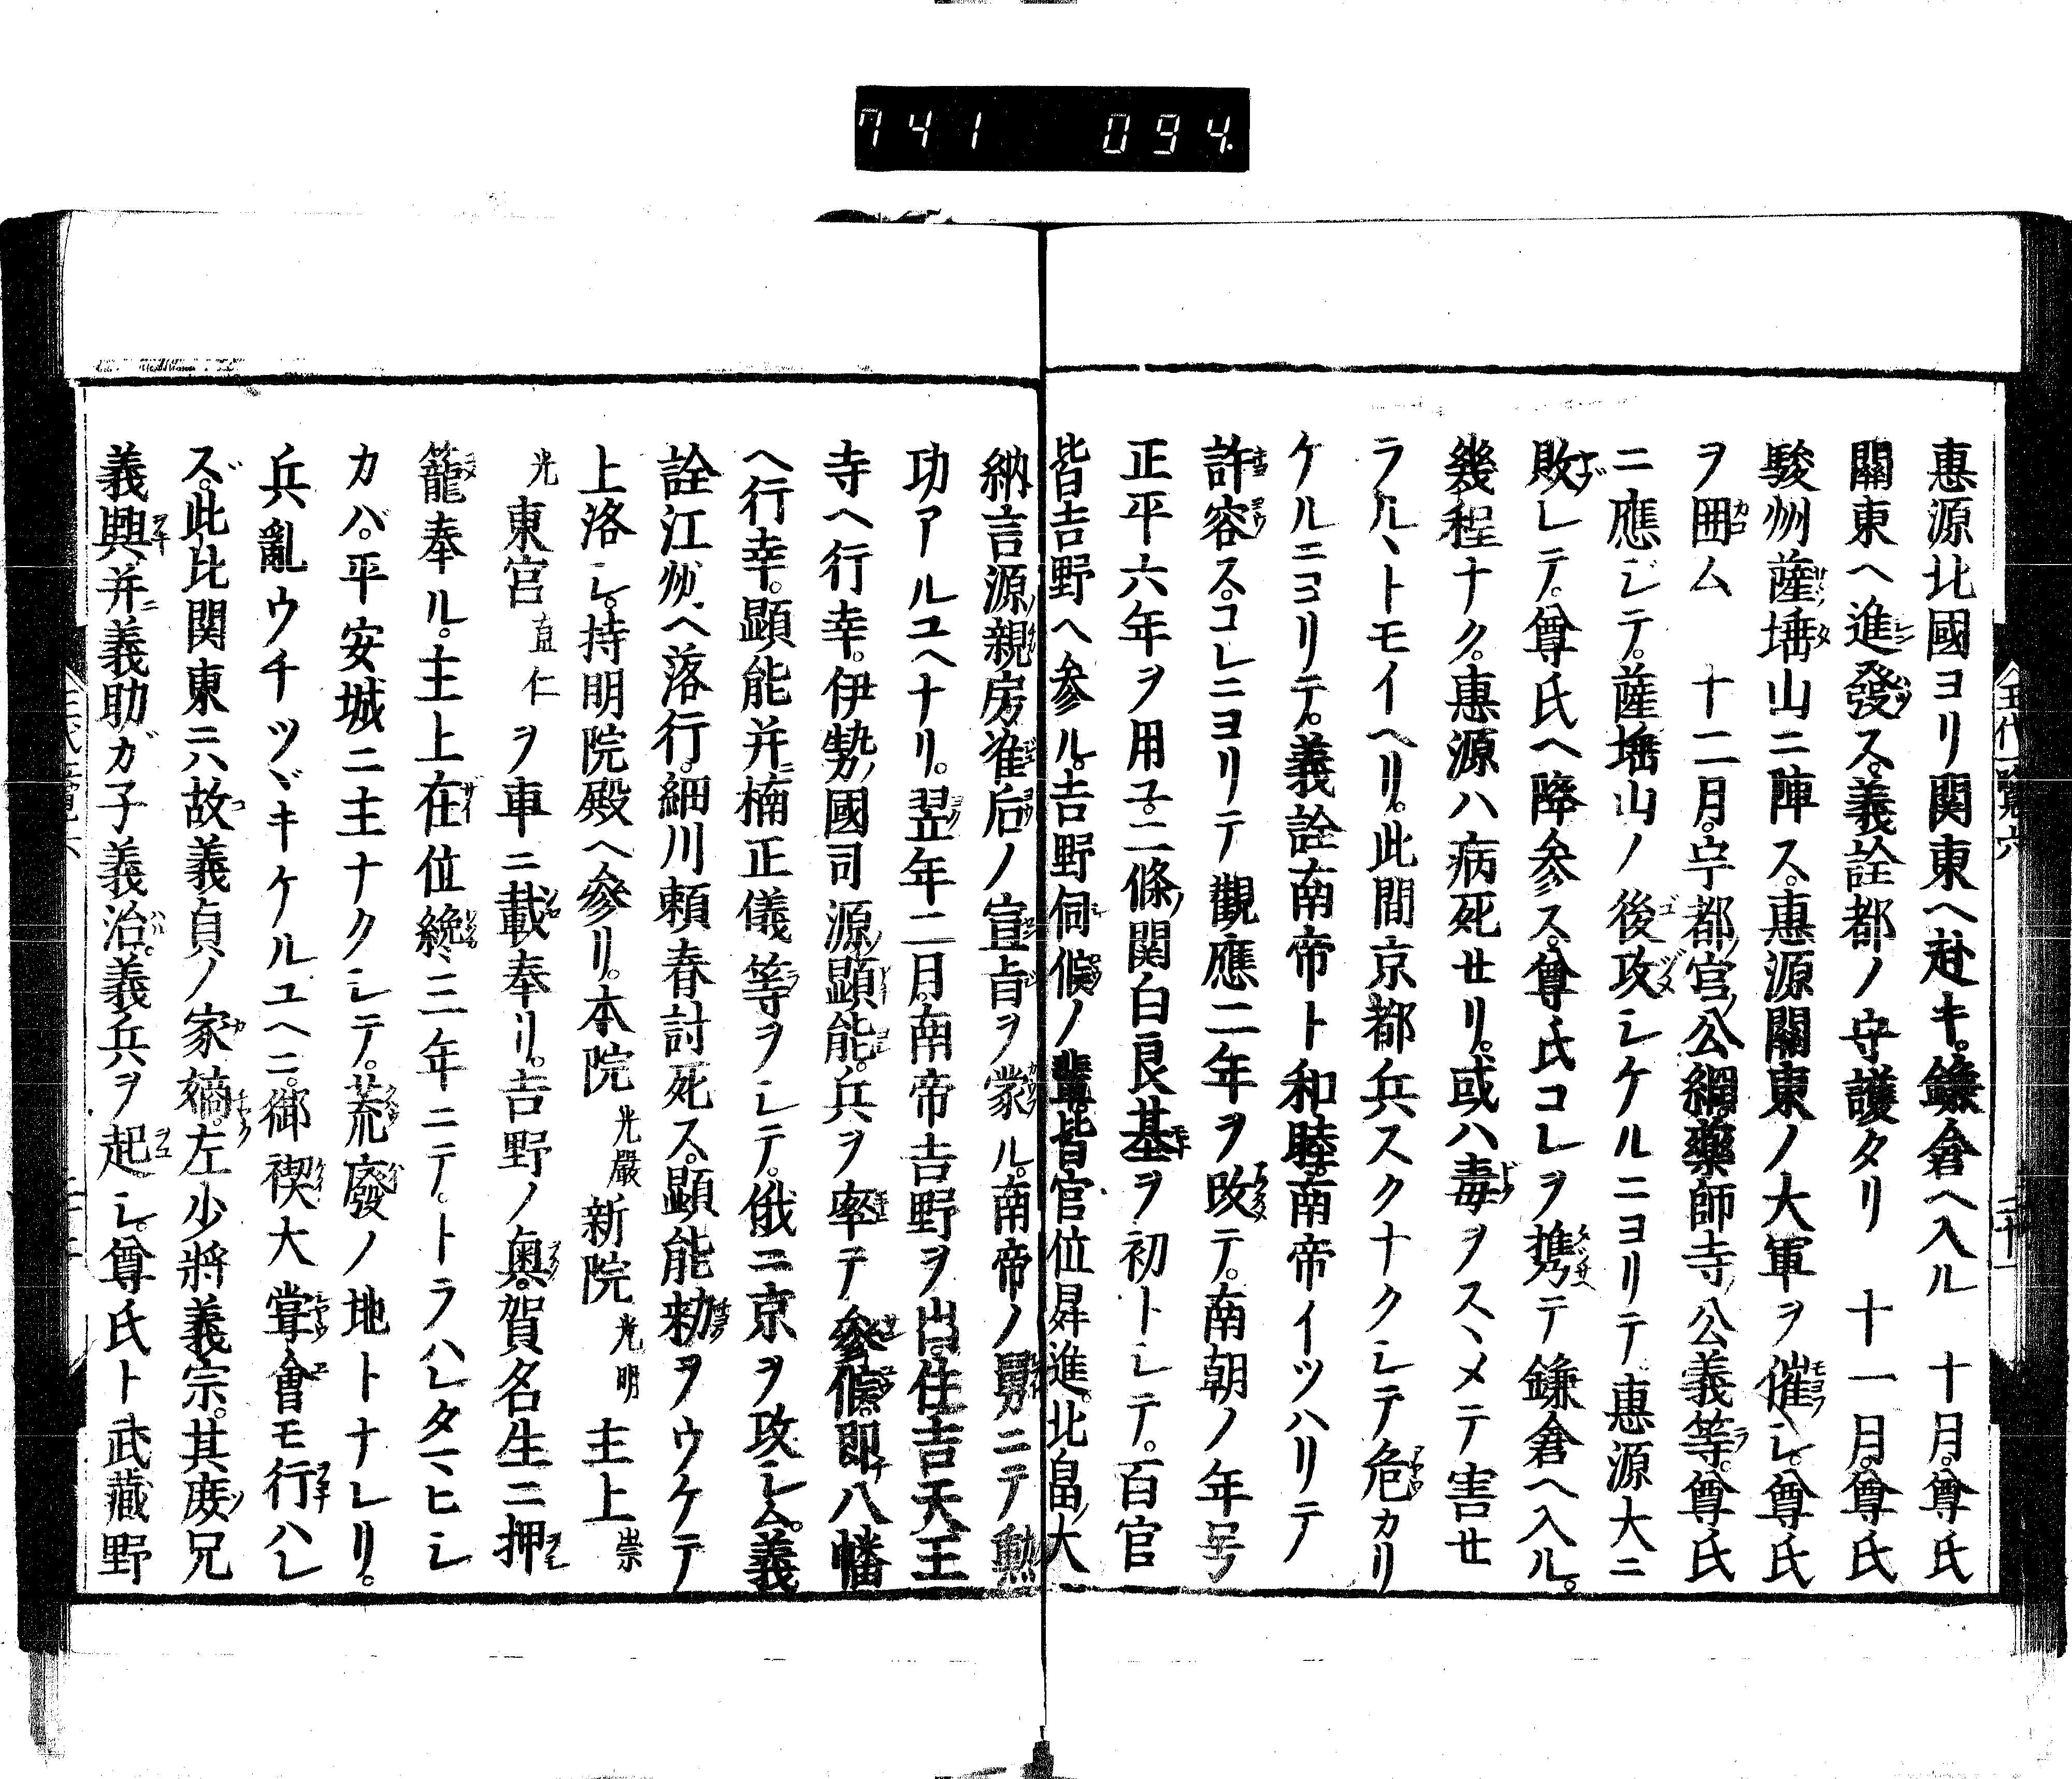 741 094
惠源北國ヨリ関東ヘ赴キ。鎌倉ヘ入ル 十月。尊氏
關東ヘ進發ス。義詮都ノ守護タリ 十一月。尊氏
駿州薩埵山ニ陣ス。惠源關東ノ大軍ヲ催シ。尊氏
ヲ囲ム 十二月。宇都宮公綱。藥師寺公義等。尊氏
ニ應ジテ。薩埵山ノ後攻シケルニヨリテ惠源大ニ
敗レテ。尊氏ヘ降参ス。尊氏コレヲ携テ鎌倉ヘ入ル。
幾程ナク。惠源ハ病死セリ。或ハ毒ヲスヽメテ害セ
ラルヽトモイヘリ。此間京都兵スクナクシテ危カリ
ケルニヨリテ。義詮南帝ト和睦。南帝イツハリテ
許容ス。コレニヨリテ觀應二年ヲ改テ。南朝ノ年号
正平六年ヲ用ユ。二條関白良基ヲ初トシテ。百官
皆吉野ヘ参ル。吉野伺候ノ輩皆官位昇進。北畠大
納言源親房准后ノ宣旨ヲ蒙ル。南帝ノ舅ニテ勲
功アルユヘナリ。翌年二月。南帝吉野ヲ出。住吉天王
寺ヘ行幸。伊勢國司源顕能。兵ヲ率テ參候。即八幡
ヘ行幸。顕能并楠正儀等ヲシテ。俄ニ京ヲ攻シム。義
詮江州ヘ落行。細川頼春討死ス。顕能勅ヲウケテ
上洛シ。持明院殿ヘ參リ。本院光嚴新院光明主上崇
光東宮直仁ヲ車ニ載奉リ。吉野ノ奥。賀名生ニ押
籠奉ル。主上在位纔三年ニテ。トラハレタマヒシ
カバ。平安城ニ主ナクシテ。荒廢ノ地トナレリ。
兵亂ウチツヾキケルユヘニ。御禊大甞會モ行ハレ
ズ。此比関東ニハ故義貞ノ家嫡。左少將義宗。其庶兄
義興并義助ガ子義治。義兵ヲ起シ。尊氏ト武藏野